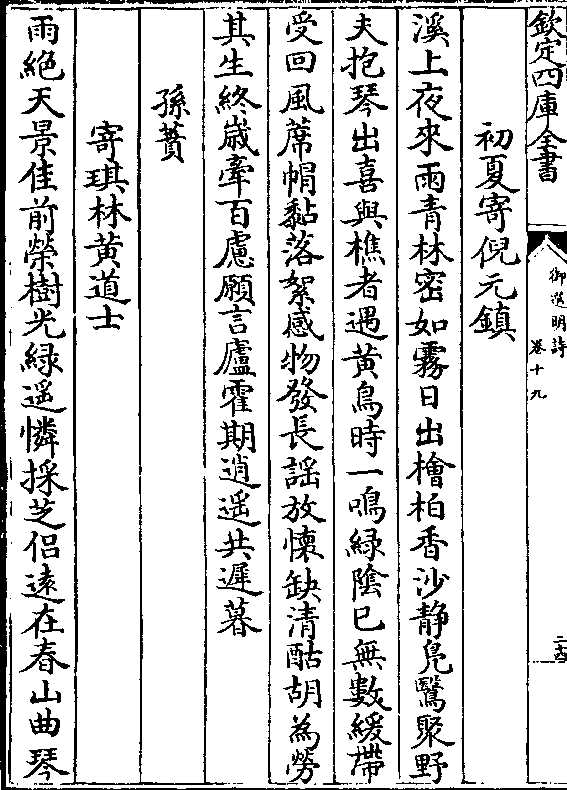 欽定四庫全書
御選明詩
卷十九
初夏寄倪元鎮
溪上夜來雨青林密如霧日出檜柏香沙靜鳧鷖聚野
夫抱琴出喜與樵者遇黃鳥時一鳴綠陰已無數緩帶
受回風蓆帽黏落絮感物發長謡放懷缺清酤胡為勞
其生終歲牽百慮願言廬霍期逍遥共遲暮
孫蕡
寄琪林黃道士
雨絕天景佳前榮樹光綠遥憐採芝侶遠在春山曲琴